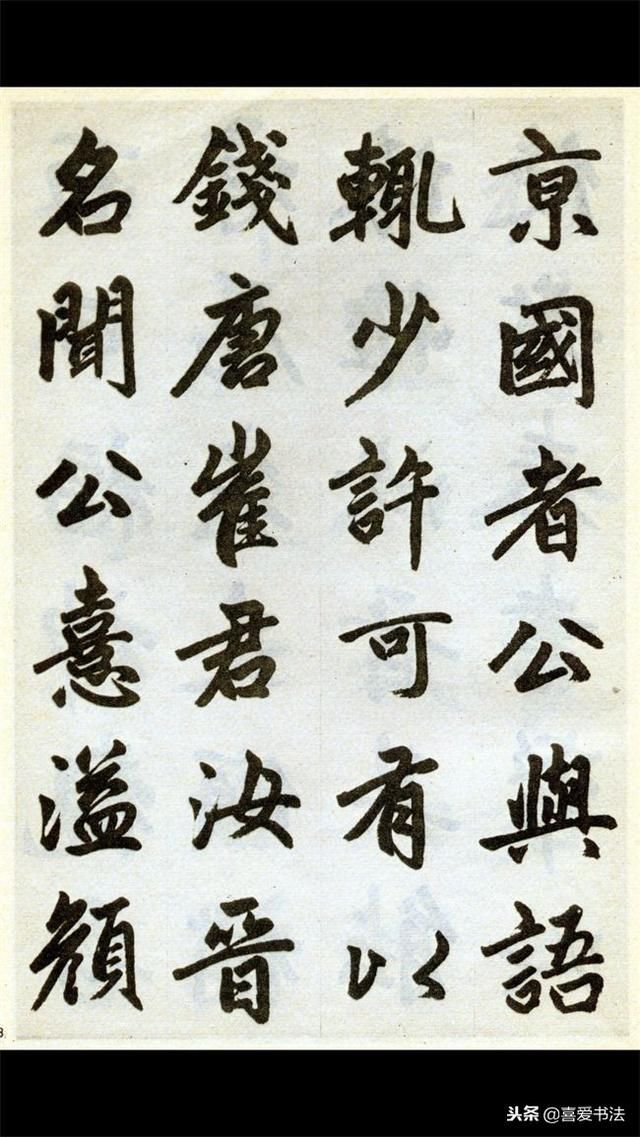 京國者公與語
輒少許可有以
錢唐崔君汝晉
名聞公憙溢顏
头条 @喜爱书法